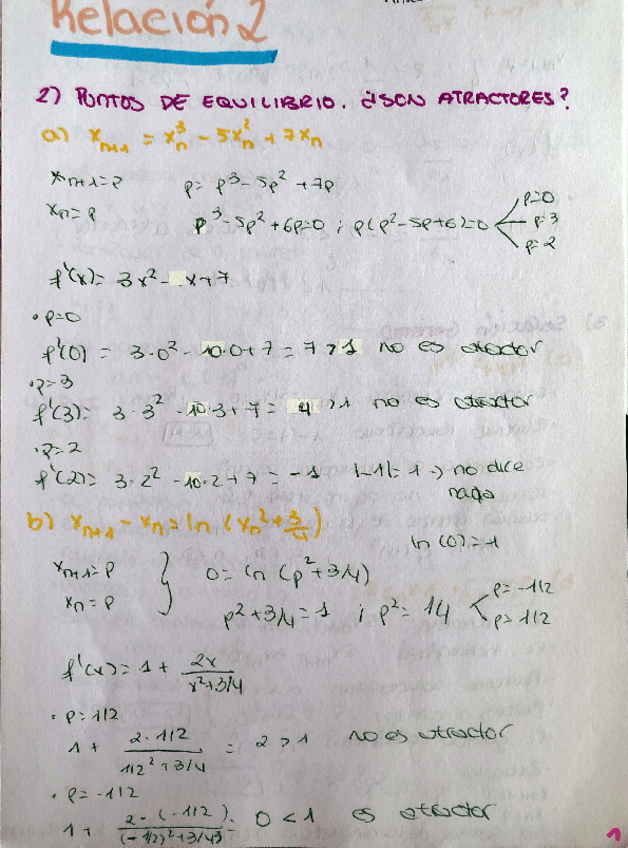 Relación 2
2) PUNTOS DE EQUILIBRIO. ¿SON ATRACTORES?
a) x_{n+1} = x_n^3 - 5x_n^2 + 7x_n
x_{n+1}=p    p= p^3 - 5p^2 + 7p
x_n = p    p^3 - 5p^2 + 6p=0 ; p(p^2 - 5p+6)=0 p=0 p=3 p=2
f'(x)= 3x^2 - x+7
· p=0
f'(0) = 3·0^2 - 10·0+7 = 7 > 1 no es atractor
· p=3
f'(3)= 3·3^2 - 10·3+7 = 4 >1 no es atractor
· p=2
f'(2)= 3·2^2 - 10·2+7 = -1 |-1|= 1 → no dice nada
b) x_{n+1} - x_n = ln (x_n^2 + 3/4)
ln (0) = 1
x_{n+1}=p
x_n = p } 0= ln (p^2+3/4)
p^2+3/4=1 ; p^2= 14 p= -1/2 p= 1/2
f'(x)= 1 + 2x / x^2+3/4
· p=1/2
1 + 2·1/2 / 1/2^2 + 3/4 = 2 > 1 no es atractor
· p=-1/2
1 + 2·(-1/2) / (-1/2)^2+3/4 = 0 < 1 es atractor
1